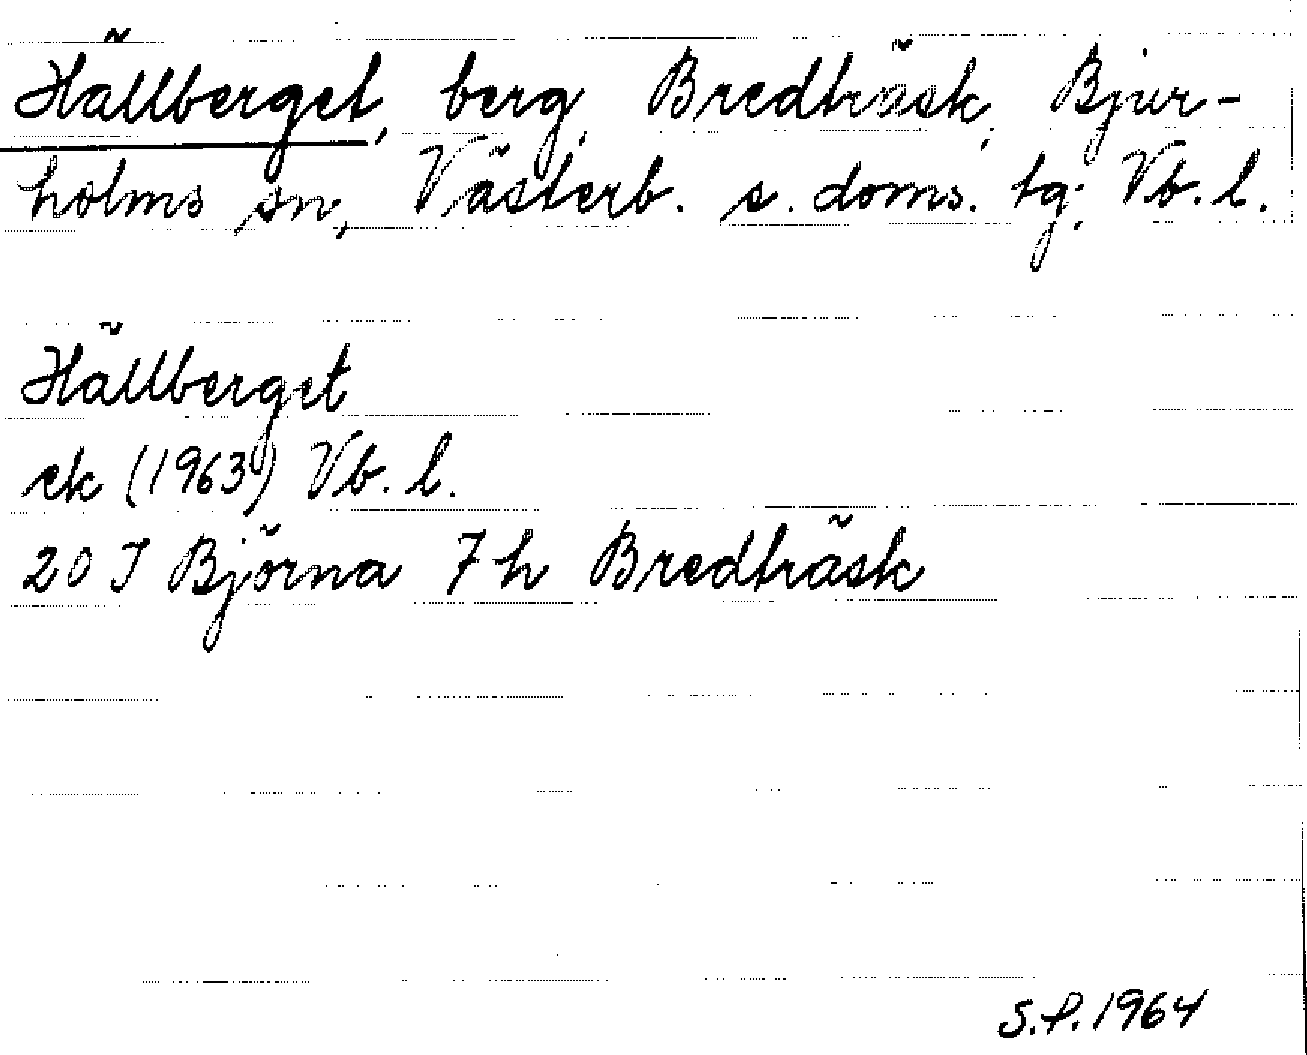 Hällberget, berg, Bredträsk, Bjur-
holms sn, Västerb. s. doms. tg, Vb. l.
Hällberget
ek (1963) Vb. l.
20 J Björna 7h Bredträsk
S.P. 1964